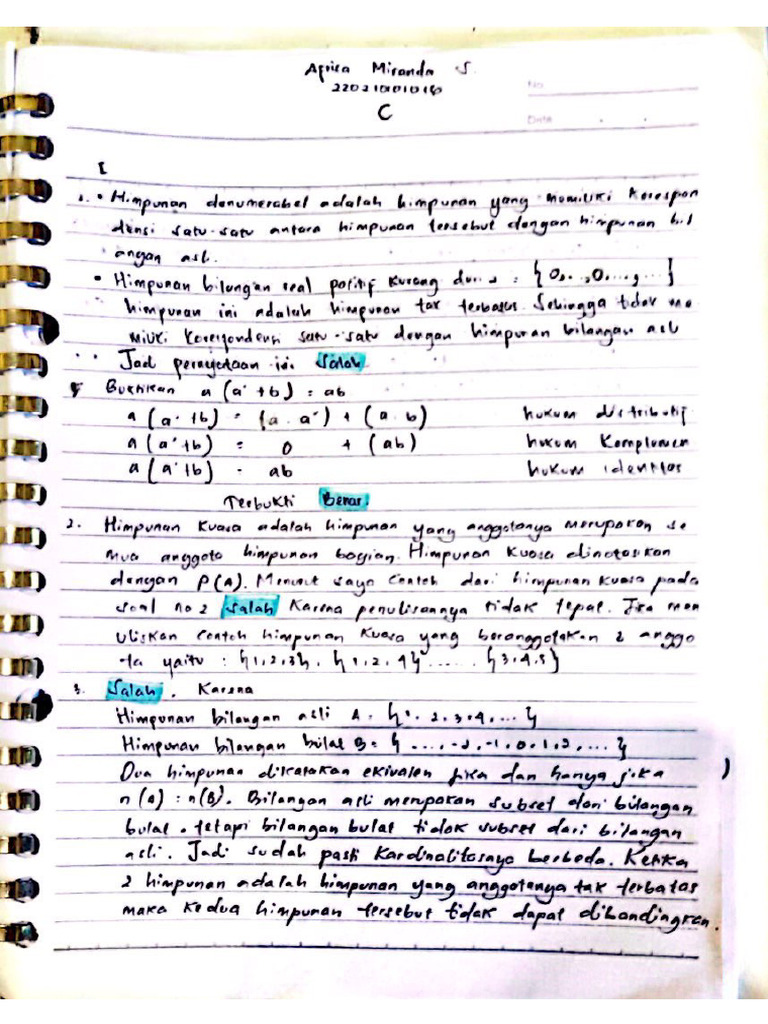 Afrisa Miranda S.
No
C
Date
I
1. • Himpunan denumerabel adalah himpunan yang memiliki korespon
densi satu-satu antara himpunan tersebut dengan himpunan bil
angan asli.
• Himpunan bilangan real positif kurang dari = {0,..,0...,...}
himpunan ini adalah himpunan tak terbatas. Sehingga tidak me
miliki korespondensi satu-satu dengan himpunan bilangan asli
Jadi pernyataan ini Salah
Buktikan a (a' + b) = ab
a (a' + b) = (a . a') + (a . b) hukum distributif
a (a' + b) = 0 + (ab) hukum Komplemen
a (a' + b) = ab hukum identitas
Terbukti Benar
2. Himpunan Kuasa adalah himpunan yang anggotanya merupakan se
mua anggota himpunan bagian. Himpunan Kuasa dinotasikan
dengan P(A). Menurut saya Contoh dari himpunan kuasa pada
soal no 2 Salah Karena penulisannya tidak tepat. Jika men
uliskan Contoh himpunan Kuasa yang beranggotakan 2 anggo
ta yaitu : {1,2,3}, {1,2,4} ...... {3,4,5}
3. Salah. Karena
Himpunan bilangan asli A = {1, 2, 3, 4, ...}
Himpunan bilangan bulat B = {...., -2, -1, 0, 1, 2, ....}
Dua himpunan dikatakan ekivalen jika dan hanya jika
n(A) = n(B). Bilangan asli merupakan subset dari bilangan
bulat. tetapi bilangan bulat tidak subset dari bilangan
asli. Jadi sudah pasti Kardinalitasnya berbeda. Ketika
2 himpunan adalah himpunan yang anggotanya tak terbatas
maka kedua himpunan tersebut tidak dapat dibandingkan.